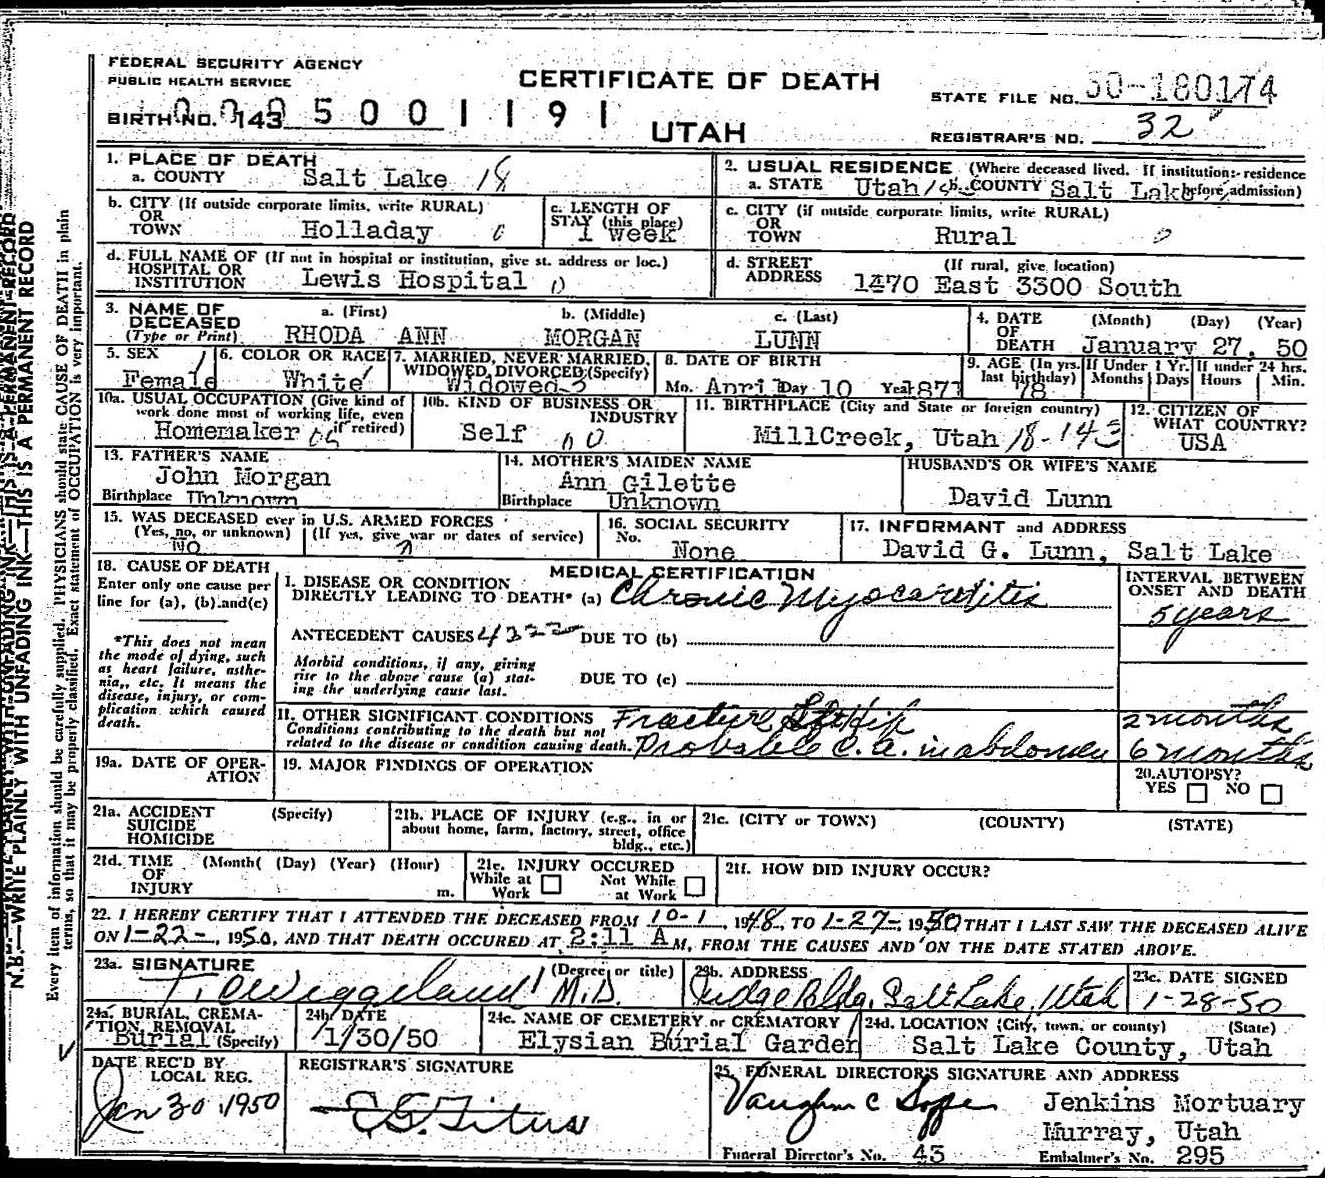 FEDERAL SECURITY AGENCY
PUBLIC HEALTH SERVICE
CERTIFICATE OF DEATH
STATE FILE NO. 50-180174
BIRTH NO. 143
5001191
UTAH
REGISTRAR'S NO. 32
1. PLACE OF DEATH
a. COUNTY Salt Lake 18
2. USUAL RESIDENCE (Where deceased lived. If institution:- residence before admission)
a. STATE Utah b. COUNTY Salt Lake
b. CITY (If outside corporate limits, write RURAL)
OR
TOWN Holladay
c. LENGTH OF
STAY (this place)
1 week
c. CITY (if outside corporate limits, write RURAL)
OR
TOWN Rural
d. FULL NAME OF (If not in hospital or institution, give st. address or loc.)
HOSPITAL OR
INSTITUTION Lewis Hospital
d. STREET
ADDRESS
(If rural, give location)
1470 East 3300 South
3. NAME OF
DECEASED
(Type or Print)
a. (First) b. (Middle) c. (Last)
RHODA ANN MORGAN LUNN
4. DATE
OF
DEATH
(Month) (Day) (Year)
January 27, 50
5. SEX
Female
6. COLOR OR RACE
White
7. MARRIED, NEVER MARRIED,
WIDOWED, DIVORCED (Specify)
Widowed
8. DATE OF BIRTH
Mo. April Day 10 Year 1871
9. AGE (In yrs.
last birthday)
78
If Under 1 Yr.
Months Days
If under 24 hrs.
Hours Min.
10a. USUAL OCCUPATION (Give kind of
work done most of working life, even
if retired)
Homemaker
10b. KIND OF BUSINESS OR
INDUSTRY
Self
11. BIRTHPLACE (City and State or foreign country)
MillCreek, Utah 18-143
12. CITIZEN OF
WHAT COUNTRY?
USA
13. FATHER'S NAME
John Morgan
Birthplace Unknown
14. MOTHER'S MAIDEN NAME
Ann Gilette
Birthplace Unknown
HUSBAND'S OR WIFE'S NAME
David Lunn
15. WAS DECEASED ever in U.S. ARMED FORCES
(Yes, no, or unknown) (If yes, give war or dates of service)
No
16. SOCIAL SECURITY
No.
None
17. INFORMANT and ADDRESS
David G. Lunn, Salt Lake
18. CAUSE OF DEATH
Enter only one cause per
line for (a), (b) and (c)
*This does not mean
the mode of dying, such
as heart failure, asthe-
nia,, etc. It means the
disease, injury, or com-
plication which caused
death.
MEDICAL CERTIFICATION
I. DISEASE OR CONDITION
DIRECTLY LEADING TO DEATH* (a) Chronic Myocarditis
INTERVAL BETWEEN
ONSET AND DEATH
5 years
ANTECEDENT CAUSES 4322 DUE TO (b)
Morbid conditions, if any, giving
rise to the above cause (a) stat-
ing the underlying cause last.
DUE TO (c)
II. OTHER SIGNIFICANT CONDITIONS
Conditions contributing to the death but not
related to the disease or condition causing death.
Fracture Left Hip 2 months
Probable C. A. in abdomen 6 months
19a. DATE OF OPER-
ATION
19. MAJOR FINDINGS OF OPERATION
20. AUTOPSY?
YES NO
21a. ACCIDENT
SUICIDE
HOMICIDE
(Specify)
21b. PLACE OF INJURY (e.g., in or
about home, farm, factory, street, office
bldg., etc.)
21c. (CITY or TOWN) (COUNTY) (STATE)
21d. TIME
OF
INJURY
(Month( (Day) (Year) (Hour)
m.
21e. INJURY OCCURED
While at
Work
Not While
at Work
21f. HOW DID INJURY OCCUR?
22. I HEREBY CERTIFY THAT I ATTENDED THE DECEASED FROM 10-1, 1948, TO 1-27-, 1950 THAT I LAST SAW THE DECEASED ALIVE
ON 1-22-, 1950, AND THAT DEATH OCCURED AT 2:11 A M, FROM THE CAUSES AND ON THE DATE STATED ABOVE.
23a. SIGNATURE (Degree or title)
M.D.
23b. ADDRESS
Judge Bldg, Salt Lake, Utah
23c. DATE SIGNED
1-28-50
24a. BURIAL, CREMA-
TION, REMOVAL
(Specify)
Burial
24b. DATE
1/30/50
24c. NAME OF CEMETERY or CREMATORY
Elysian Burial Garden
24d. LOCATION (City, town, or county) (State)
Salt Lake County, Utah
DATE REC'D BY
LOCAL REG.
Jan 30 1950
REGISTRAR'S SIGNATURE
25. FUNERAL DIRECTOR'S SIGNATURE AND ADDRESS
Jenkins Mortuary
Murray, Utah
Funeral Director's No. 43
Embalmer's No. 295
N.B.—WRITE PLAINLY WITH UNFADING INK—THIS IS A PERMANENT RECORD
Every item of information should be carefully supplied. PHYSICIANS should state CAUSE OF DEATH in plain
terms, so that it may be properly classified. Exact statement of OCCUPATION is very important.